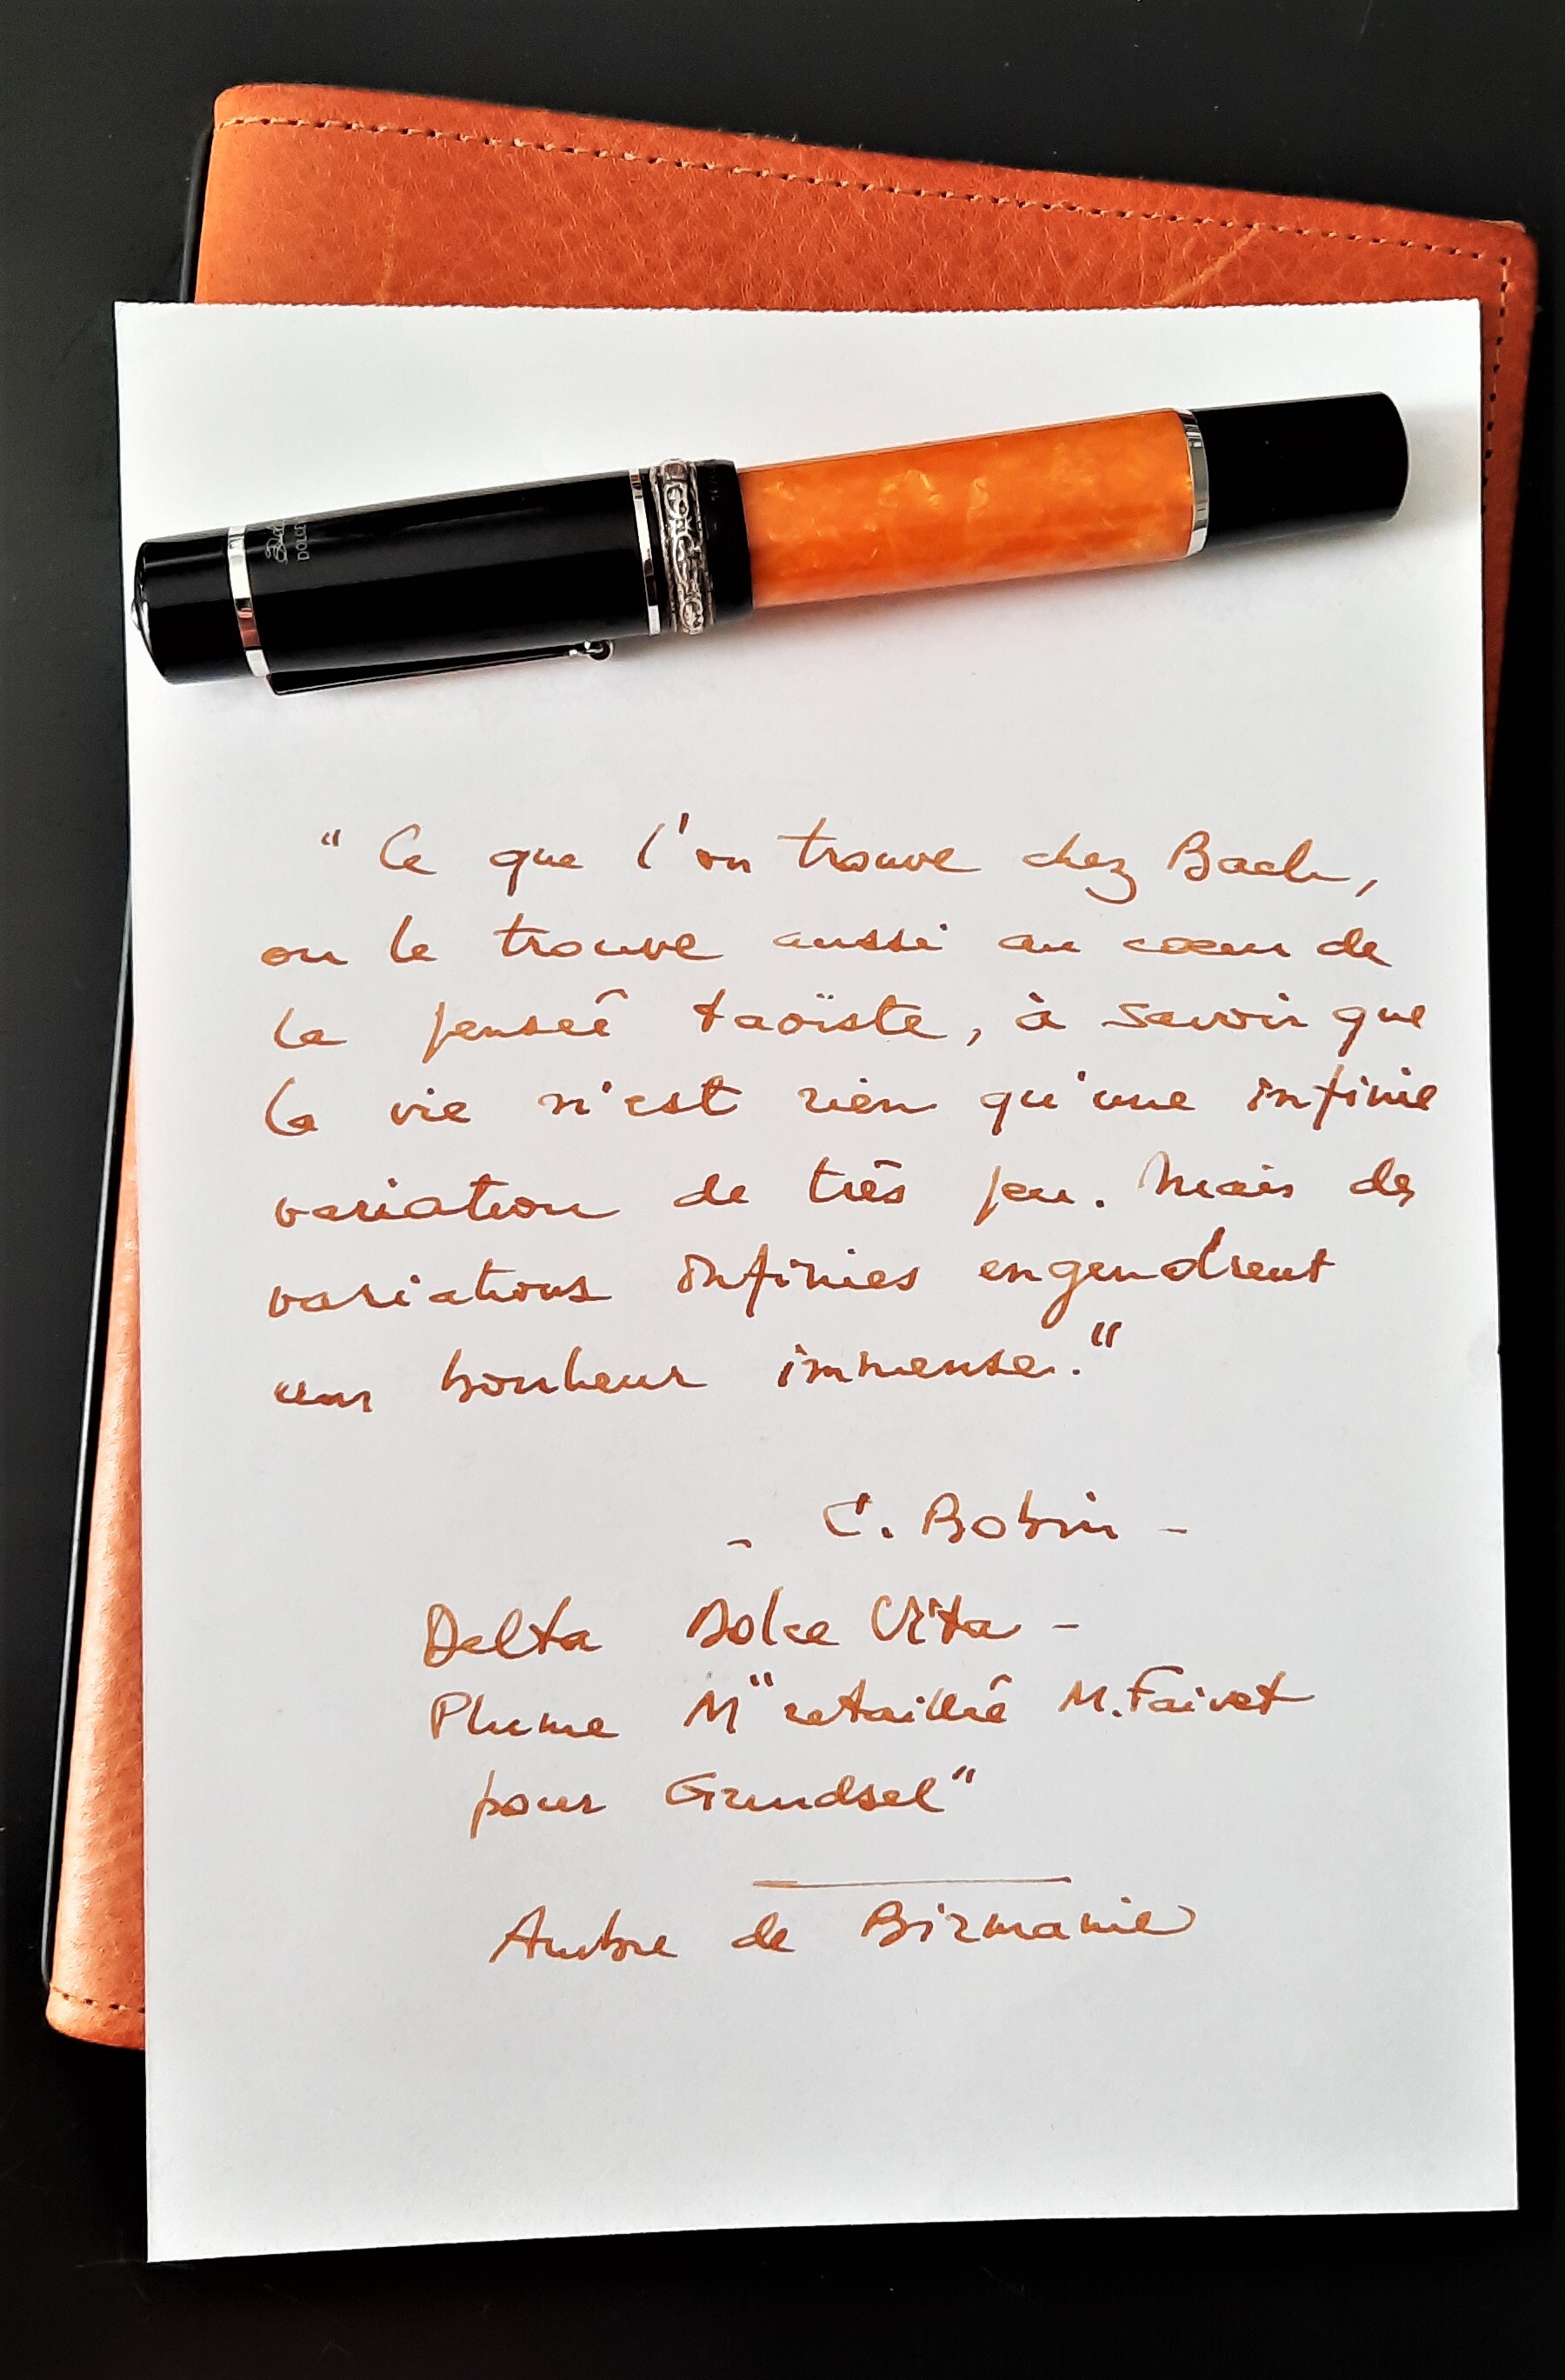 DOLCE
“ Ce que l'on trouve chez Bach,
on le trouve aussi au cœur de
la pensée taoïste, à savoir que
la vie n'est rien qu'une infinie
variation de très peu. Mais des
variations infinies engendrent
un bonheur immense.”
- C. Bobin -
Delta Dolce Vita -
Plume M "retaillée M. Faivet
pour Grundsel"
Ambre de Birmanie